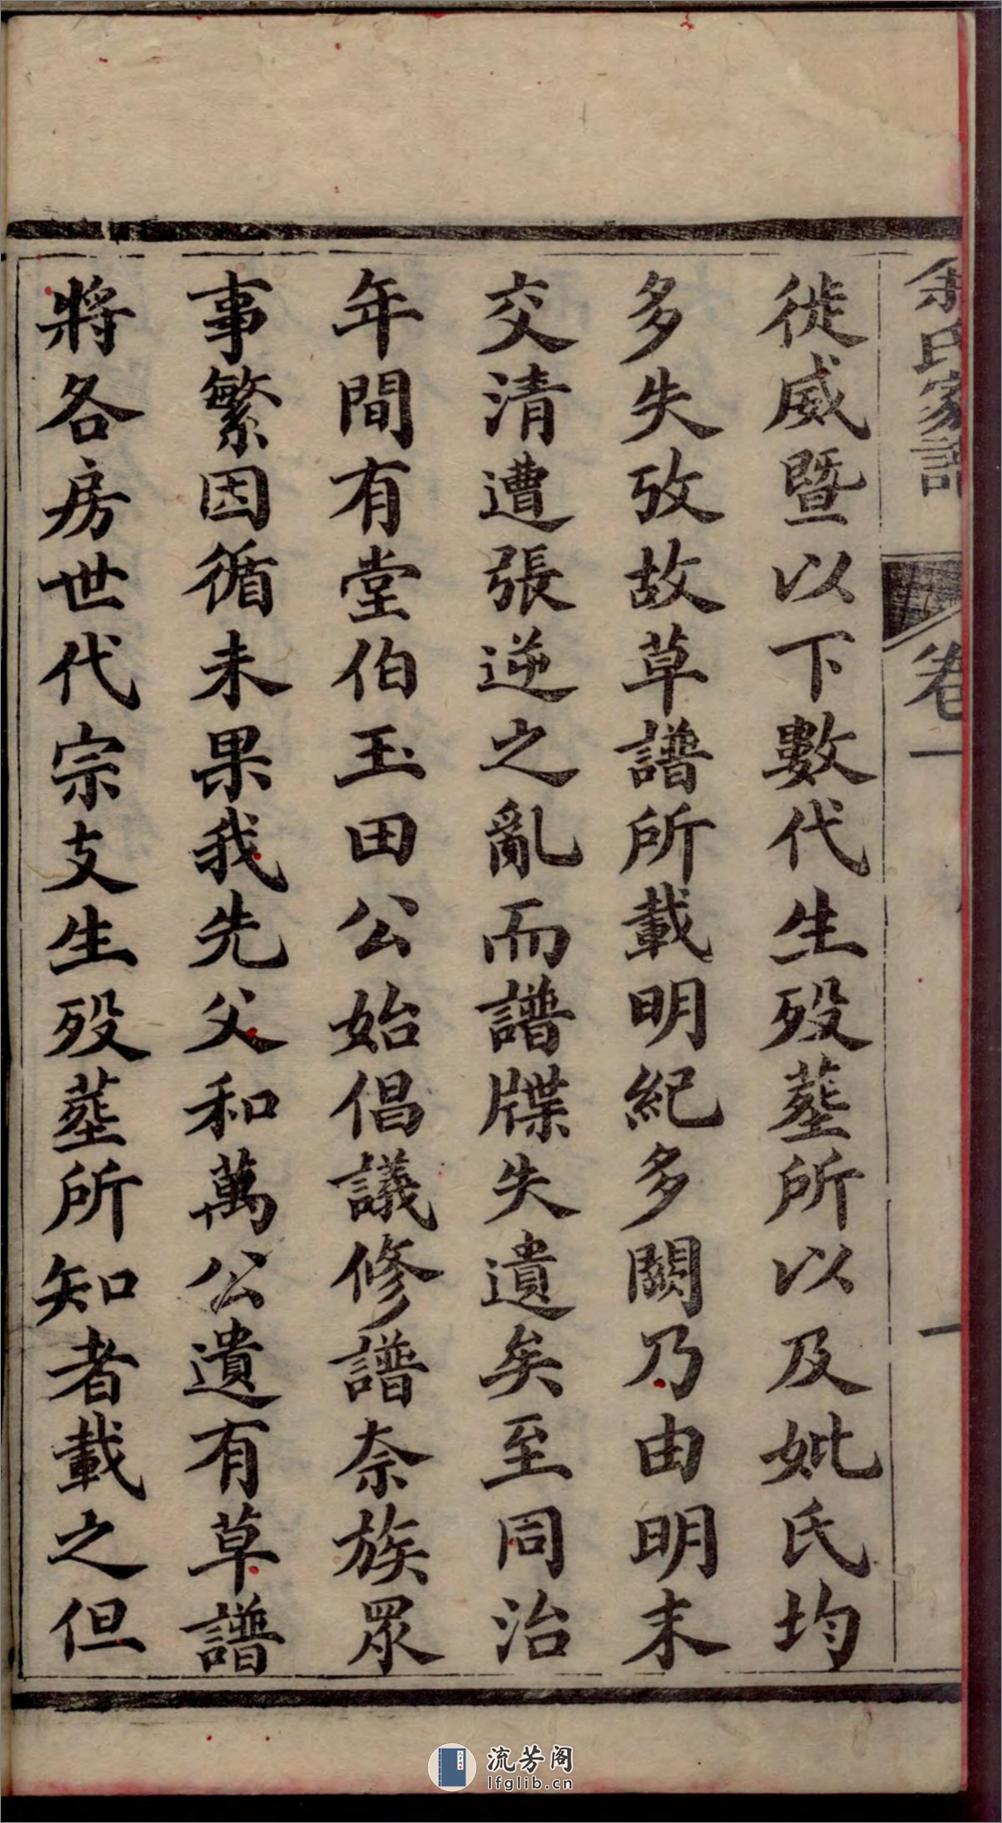 余氏家譜 卷一 一
徙威暨以下數代生歿塟所以及妣氏均
多失攷故草譜所載明紀多闕乃由明末
交清遭張逆之亂而譜牒失遺矣至同治
年間有堂伯玉田公始倡議修譜奈族眾
事繁因循未果我先父和萬公遺有草譜
將各房世代宗支生歿塟所知者載之但
流芳阁
lfglib.cn